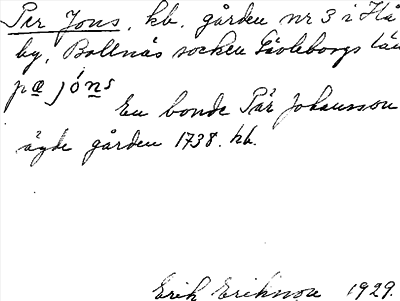 Per Jons, kb. gården nr 3 i Hå
by, Bollnäs socken Gävleborgs län
pæ jóns
En bonde Pär Johansson
ägde gården 1738. kb.
Erik Eriksson 1929.